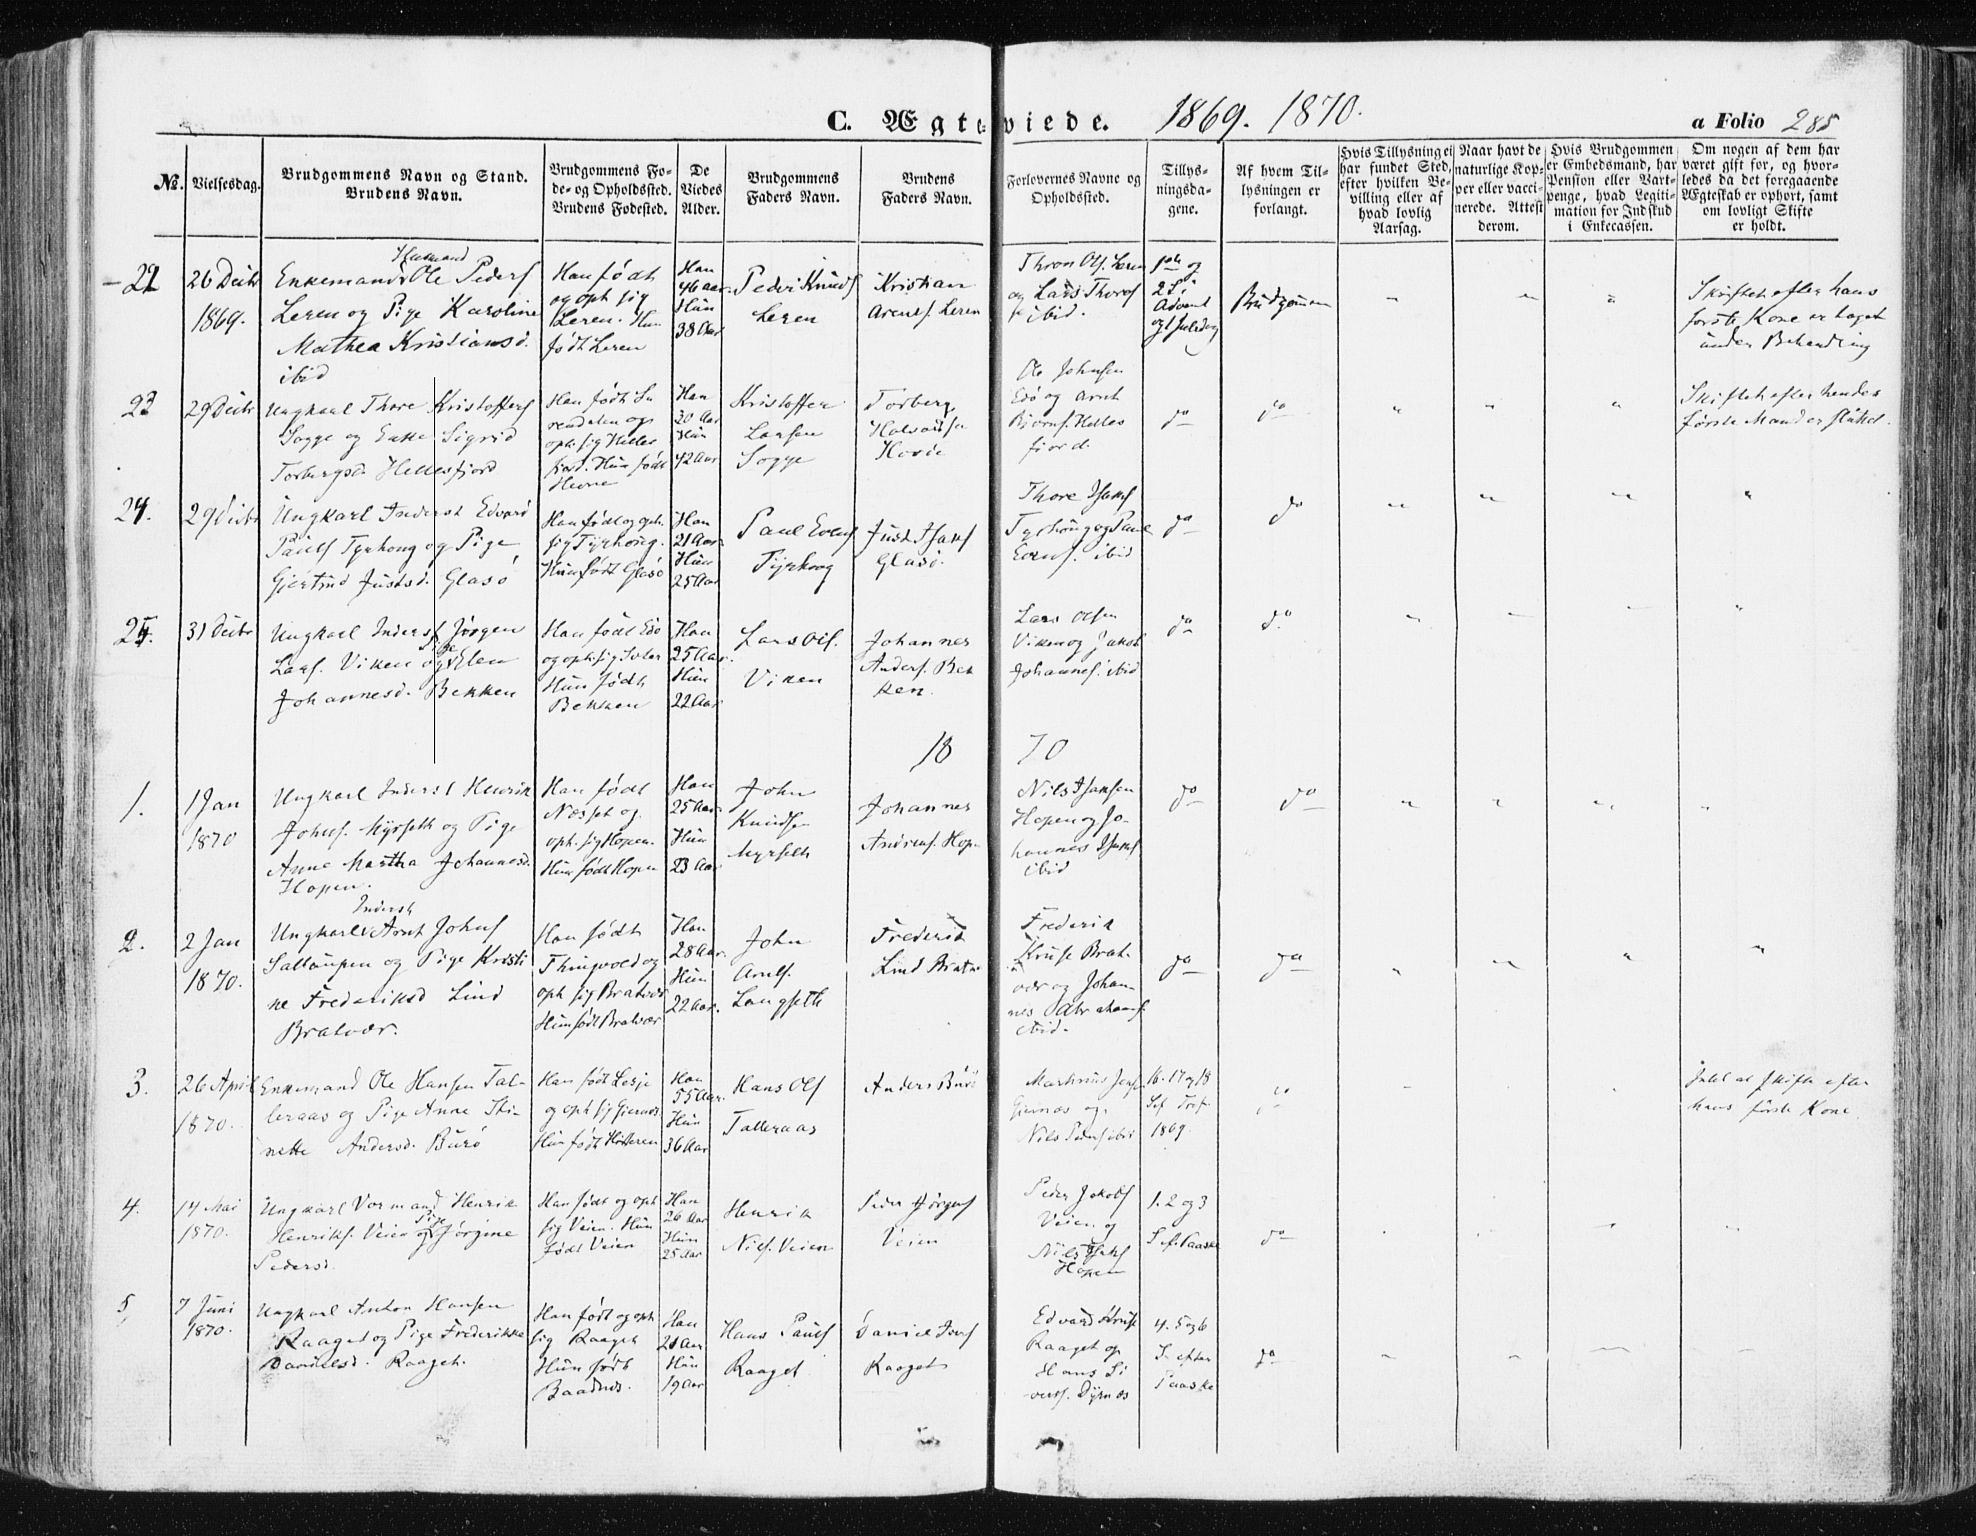 C. Ægteviede. 1869. 1870. a Folio 285
No.
Vielsesdag.
Brudgommens Navn og Stand.
Brudens Navn.
Brudgommens Fø-
de- og Opholdssted.
Brudens Fødested.
De
Viedes
Alder.
Brudgommens
Faders Navn.
Brudens
Faders Navn.
Forlovernes Navne og
Opholdssted.
Tillys-
ningsda-
gene.
Af hvem Til-
lysningen er
forlangt.
Hvis Tillysning ei
har fundet Sted,
efter hvilken Be-
villing eller af
hvad lovlig
Aarsag.
Naar havt de
naturlige Kop-
per eller vacci-
nerede. Attest
derom.
Hvis Brudgommen
er Embedsmand, har
Pension eller Vart-
penge, hvad Legiti-
mation for Indskud
i Enkecassen.
Om nogen af dem har
været gift før, og hvor-
ledes da det foregaaende
Ægteskab er ophørt, samt
om lovligt Skifte
er holdt.
22
26 Decbr
1869.
Husmand
Enkemand Ole Peders
Leren og Pige Karoline
Mathea Kristiansd.
ibid
Han født
og oph. sig
Leren. Hun
født Leren
Han
46 aar.
Hun
38 Aar
Peder Knuds
Leren
Kristian
Arents. Leren
Thron Ols. Leren
og Lars Thors
ibid.
1ste og
2 S.
Advent
og 1 Juledag
Brudgommen
" " "
Skiftet efter hans
første Kone er taget
under Behandling
23
29 Decbr
Ungkarl Thore Kristoffers
Sogge og Enke Sigrid
Torbergsd. Hellesfjord
Han født Su
rendalen og
oph. sig Helles
fjord. Hun født
Hevne
Han
30 Aar
Hun
42 Aar
Kristoffer
Larsen
Sogge
Torberg
Halvorsen
Hovde
Ole Johnsen
Edø og Arnt
Bjørns. Helles
fjord.
do
do
" " "
Skiftet efter hendes
første Mand er sluttet.
24.
29 Decbr
Ungkarl Inderst Edvard
Pauls Tyrhoug og Pige
Gjertrud Justsd. Glasø
Han født og oph.
sig Tyrhoug.
Hun født Glasø
Han
21 Aar.
Hun
25 Aar
Paul Evens
Tyrhoug
Just Isaks
Glasø.
Thore Isaks
Tyrhoug og Paul
Evens. ibid
do
do
" " " "
25.
31 Decbr
Ungkarl Inderst Jørgen
Lars. Viken og Pige Elen
Johannesd. Bekken
Han født Edø
og oph. sig
Hun født
Bekken
Han
25 Aar.
Hun
22 Aar
Lars Ols.
Viken
Johannes
Anders. Bek
ken.
Lars Olsen
Viken og Jakob
Johannes. ibid
do
do
" "
1870
1.
1 Jan
1870
Ungkarl Inderst Henrik
Johns. Myrseth og Pige
Anne Martha Johannesd.
Hopen.
Han født
Næsset og
oph. sig Hopen.
Hun født Hopen
Han
25 Aar.
Hun
23 Aar
John
Knudsen
Myrseth
Johannes
Andreas. Hopen
Nils Isaksen
Hopen og Jo-
hannes Isaks
ibid
do
do
" " " "
2.
2 Jan
1870.
Inderst
Ungkarl Arnt Johns
Saltrupen og Pige Kristi
ne Frederiksd Lind
Bratvær.
Han født
Thingvold og
oph. sig Bratvær
Hun født Bratvær
Han
28 Aar.
Hun
22 Aar.
John
Arnts.
Langseth
Frederik
Lind Bratvær
Frederik
Kruse Brat-
vær og Johan-
nes Abrahams.
ibid.
do
do
" " " "
3.
26 April
1870.
Enkemand Ole Hansen Tal-
leraas og Pige Anne Sti-
nette Andersd. Burø
Han født Lesje
og oph. sig Gjernæs
Hun født Hitteren
Han
55 Aar.
Hun
36 Aar
Hans Ols
Talleraas
Anders Burø
Markus Jens.
Gjernæs og
16. 17 og 18
S. ef. Tref.
1869.
do
Intet at skifte efter
hans første Kone.
4.
14 Mai
1870.
Ungkarl Vormand Henrik
Henriks. Veien og Pige Jørgine
Pedersd.
Han født og oph
sig Veien. Hun
født Veien
Han
26 Aar
Hun
25 Aar
Henrik
Nils. Veien
Peder Jørgens
Veien
Peder Jakobs
Veien og
Nils Isaks
Hopen
1. 2 og 3
S. ef. Paaske
do
5
7 Juni
1870.
Ungkarl Anton Hansen
Raaget og Pige Frederikke
Danielsd. Raaget.
Han født og oph
sig Raaget
Hun født
Baadnæs.
Han
21 Aar
Hun
19 Aar
Hans Pauls
Raaget
Daniel Ivers
Raaget
Edvard Kruse
Raaget og
Hans Si
verts. Dyrnæs
4. 5 og 6
S. efter
Paaske
do